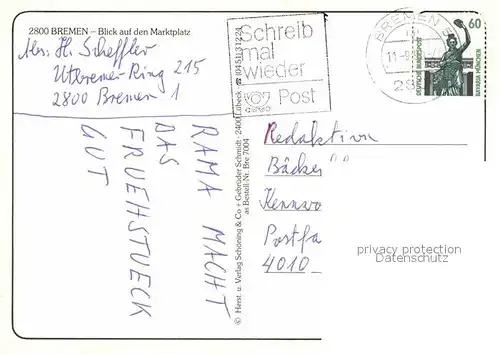 2800 BREMEN – Blick auf den Marktplatz
Abs. H. Scheffler
Utbremer Ring 215
2800 Bremen 1
Schreib
mal
wieder
Post
BREMEN 5
11.-8
28
60
DEUTSCHE BUNDESPOST
BAVARIA MÜNCHEN
RAMA MACHT
DAS
FRUEHSTUECK
GUT
© Herst. u. Verlag Schöning & Co + Gebrüder Schmidt · 2400 Lübeck ☎ (0451) 31220
as Bestell-Nr. Bre 7004
Redaktion
Bäcke
Kennwo
Postfa
4010
privacy protection
Datenschutz